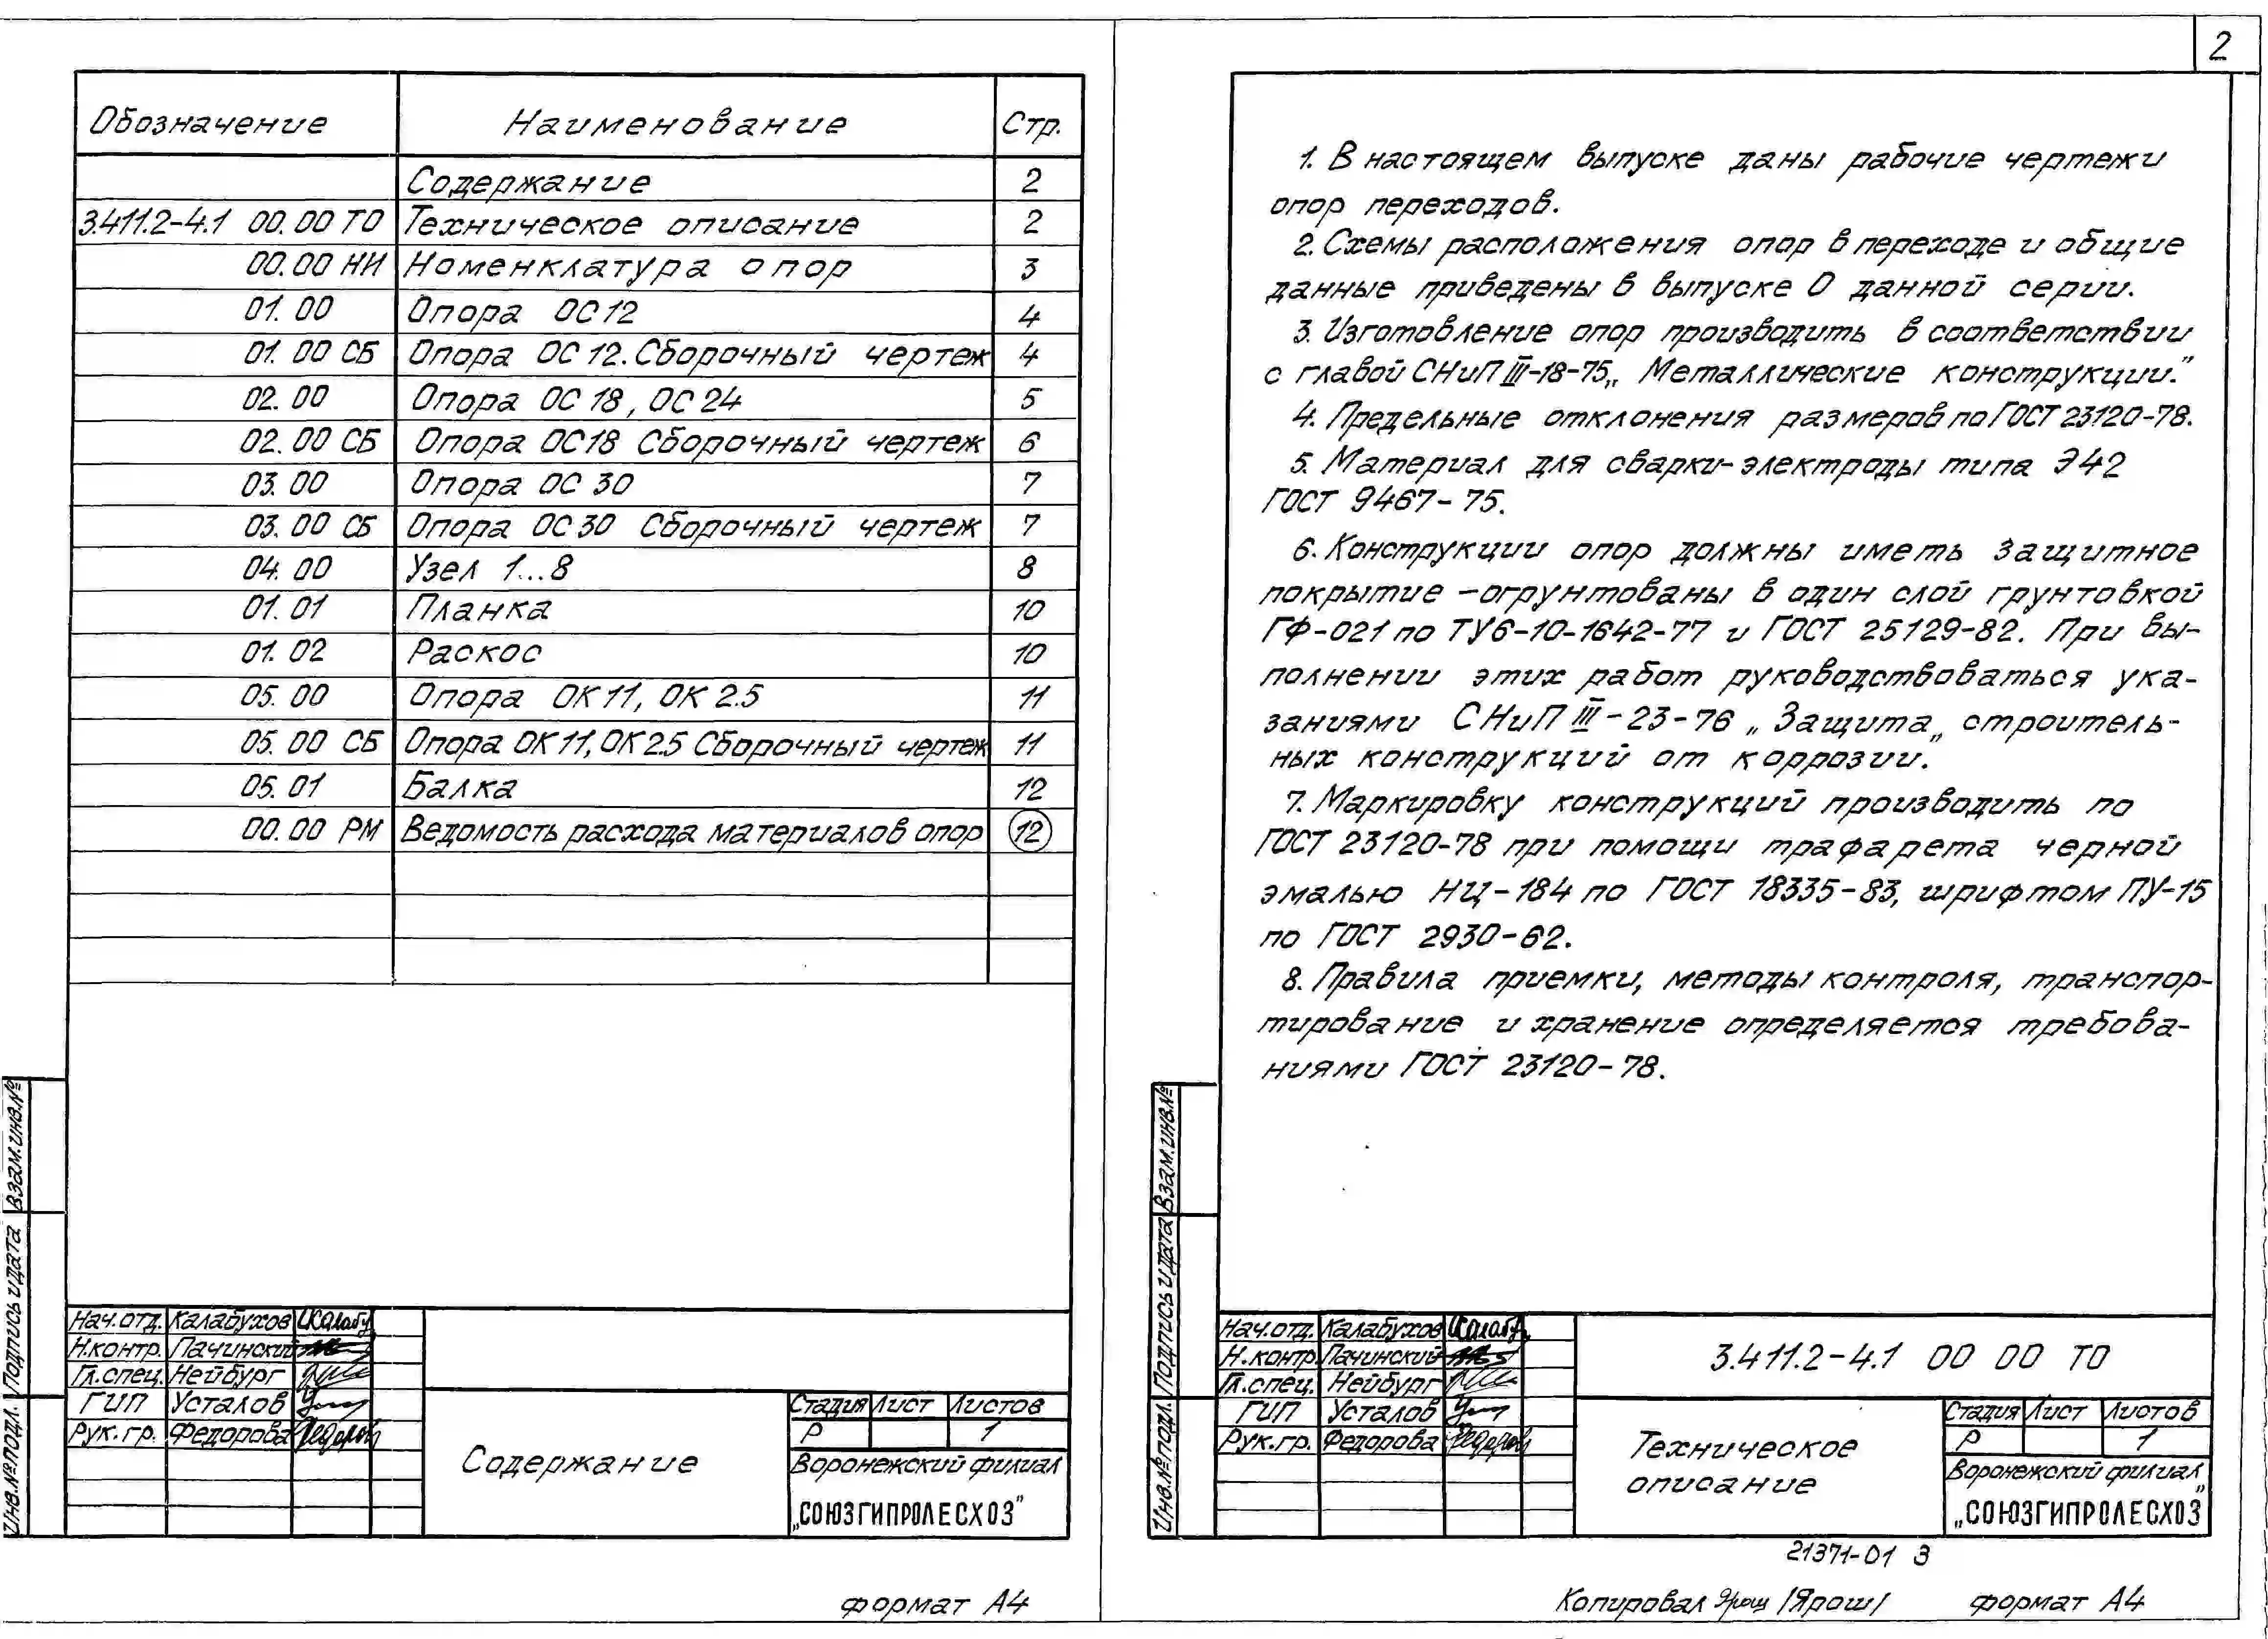 2
Обозначение Наименование Стр.
Содержание 2
3.411.2-4.1 00.00 ТО Техническое описание 2
00.00 НИ Номенклатура опор 3
01.00 Опора ОС12 4
01.00 СБ Опора ОС 12. Сборочный чертеж 4
02.00 Опора ОС 18, ОС 24 5
02.00 СБ Опора ОС18 Сборочный чертеж 6
03.00 Опора ОС 30 7
03.00 СБ Опора ОС 30 Сборочный чертеж 7
04.00 Узел 1...8 8
01.01 Планка 10
01.02 Раскос 10
05.00 Опора ОК11, ОК 2.5 11
05.00 СБ Опора ОК11, ОК2.5 Сборочный чертеж 11
05.01 Балка 12
00.00 РМ Ведомость расхода материалов опор 12
Взам.инв.№
Подпись и дата
Инв.№подл.
Нач.отд. Калабухов
Н.контр. Пачинский
Гл.спец. Нейбург
ГИП Усталов
Рук.гр. Федорова
Содержание
Стадия Лист Листов
Р 1
Воронежский филиал
„СОЮЗГИПРОЛЕСХОЗ"
формат А4
1. В настоящем выпуске даны рабочие чертежи
опор переходов.
2. Схемы расположения опор в переходе и общие
данные приведены в выпуске 0 данной серии.
3. Изготовление опор производить в соответствии
с главой СНиП III-18-75 „Металлические конструкции."
4. Предельные отклонения размеров по ГОСТ 23120-78.
5. Материал для сварки-электроды типа Э42
ГОСТ 9467-75.
6. Конструкции опор должны иметь защитное
покрытие -огрунтованы в один слой грунтовкой
ГФ-021 по ТУ6-10-1642-77 и ГОСТ 25129-82. При вы-
полнении этих работ руководствоваться ука-
заниями СНиП III-23-76 „Защита„ строитель-
ных конструкций от коррозии.
7. Маркировку конструкций производить по
ГОСТ 23120-78 при помощи трафарета черной
эмалью НЦ-184 по ГОСТ 18335-83, шрифтом ПУ-15
по ГОСТ 2930-62.
8. Правила приемки, методы контроля, транспор-
тирование и хранение определяется требова-
ниями ГОСТ 23120-78.
Взам.инв.№
Подпись и дата
Инв.№подл.
Нач.отд. Калабухов
Н.контр. Пачинский
Гл.спец. Нейбург
ГИП Усталов
Рук.гр. Федорова
3.411.2-4.1 00 00 ТО
Техническое
описание
Стадия Лист Листов
Р 1
Воронежский филиал
„СОЮЗГИПРОЛЕСХОЗ"
21371-01 3
Копировал Ярош /Ярош/ формат А4